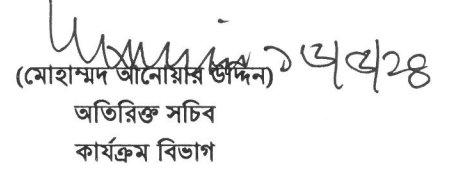 (মোহাম্মদ আনোয়ার উদ্দিন)
অতিরিক্ত সচিব
কার্যক্রম বিভাগ